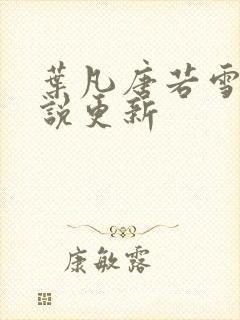 葉凡唐若雪
說更新
康敏露